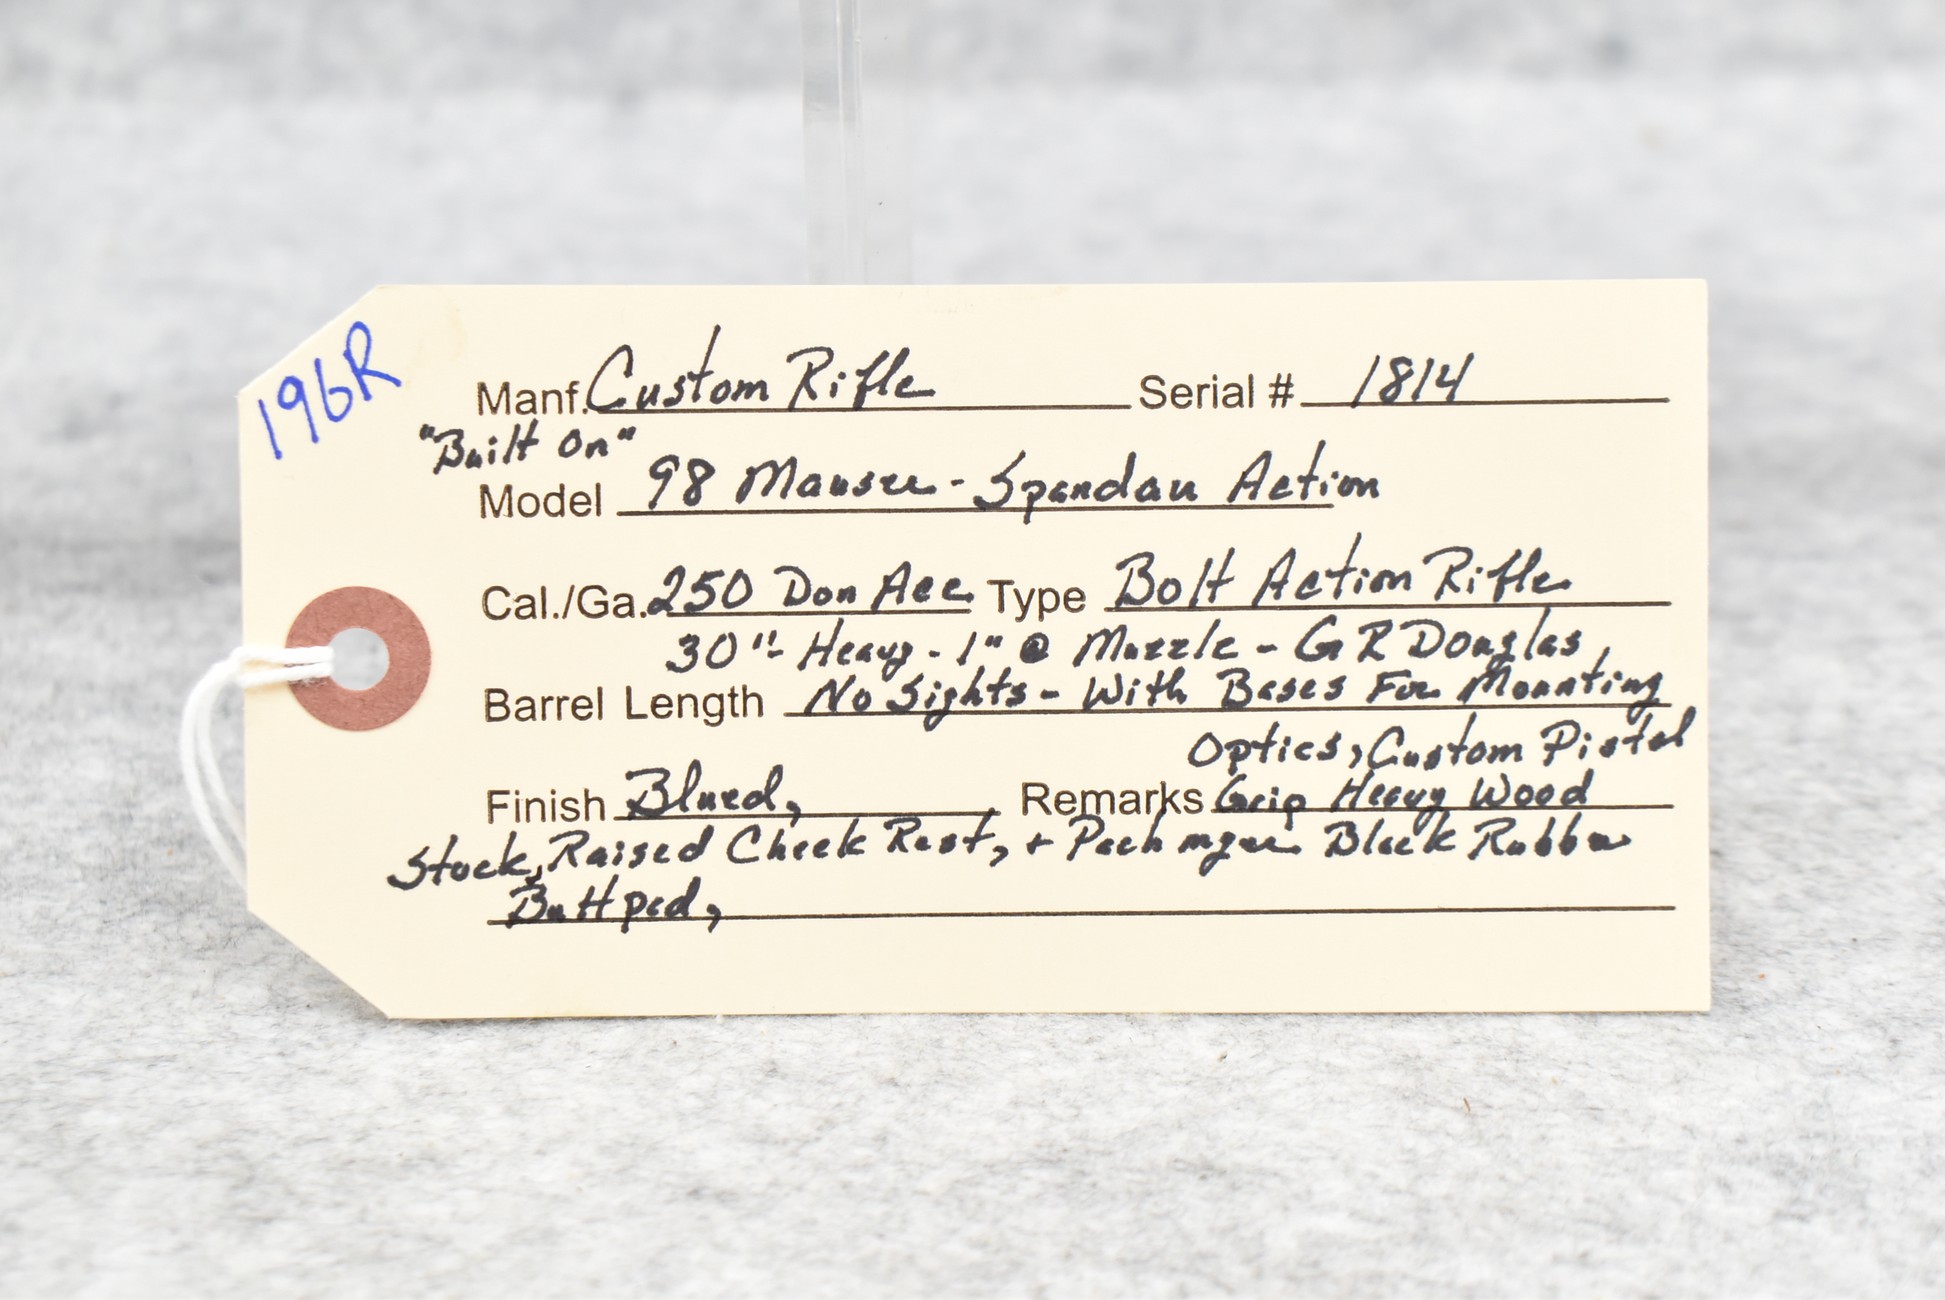 196R
Manf. Custom Rifle Serial # 1814
"Built On"
Model 98 Mauser - Spandau Action
Cal./Ga. 250 Don Ace Type Bolt Action Rifle
30"- Heavy - 1" @ Muzzle - G R Douglas,
Barrel Length No Sights - With Bases For Mounting
Optics, Custom Pistol
Finish Blued, Remarks Grip Heavy Wood
Stock, Raised Cheek Rest, + Pachmyer Black Rubber
Buttpad,